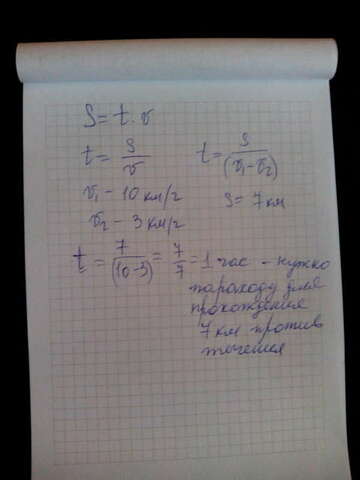 S = t · v
t = S/v   t = S/(v₁-v₂)
v₁ - 10 км/г   S = 7 км
v₂ - 3 км/г
t = 7/(10-3) = 7/7 = 1 час - нужно
пароходу для
прохождения
7 км против
течения